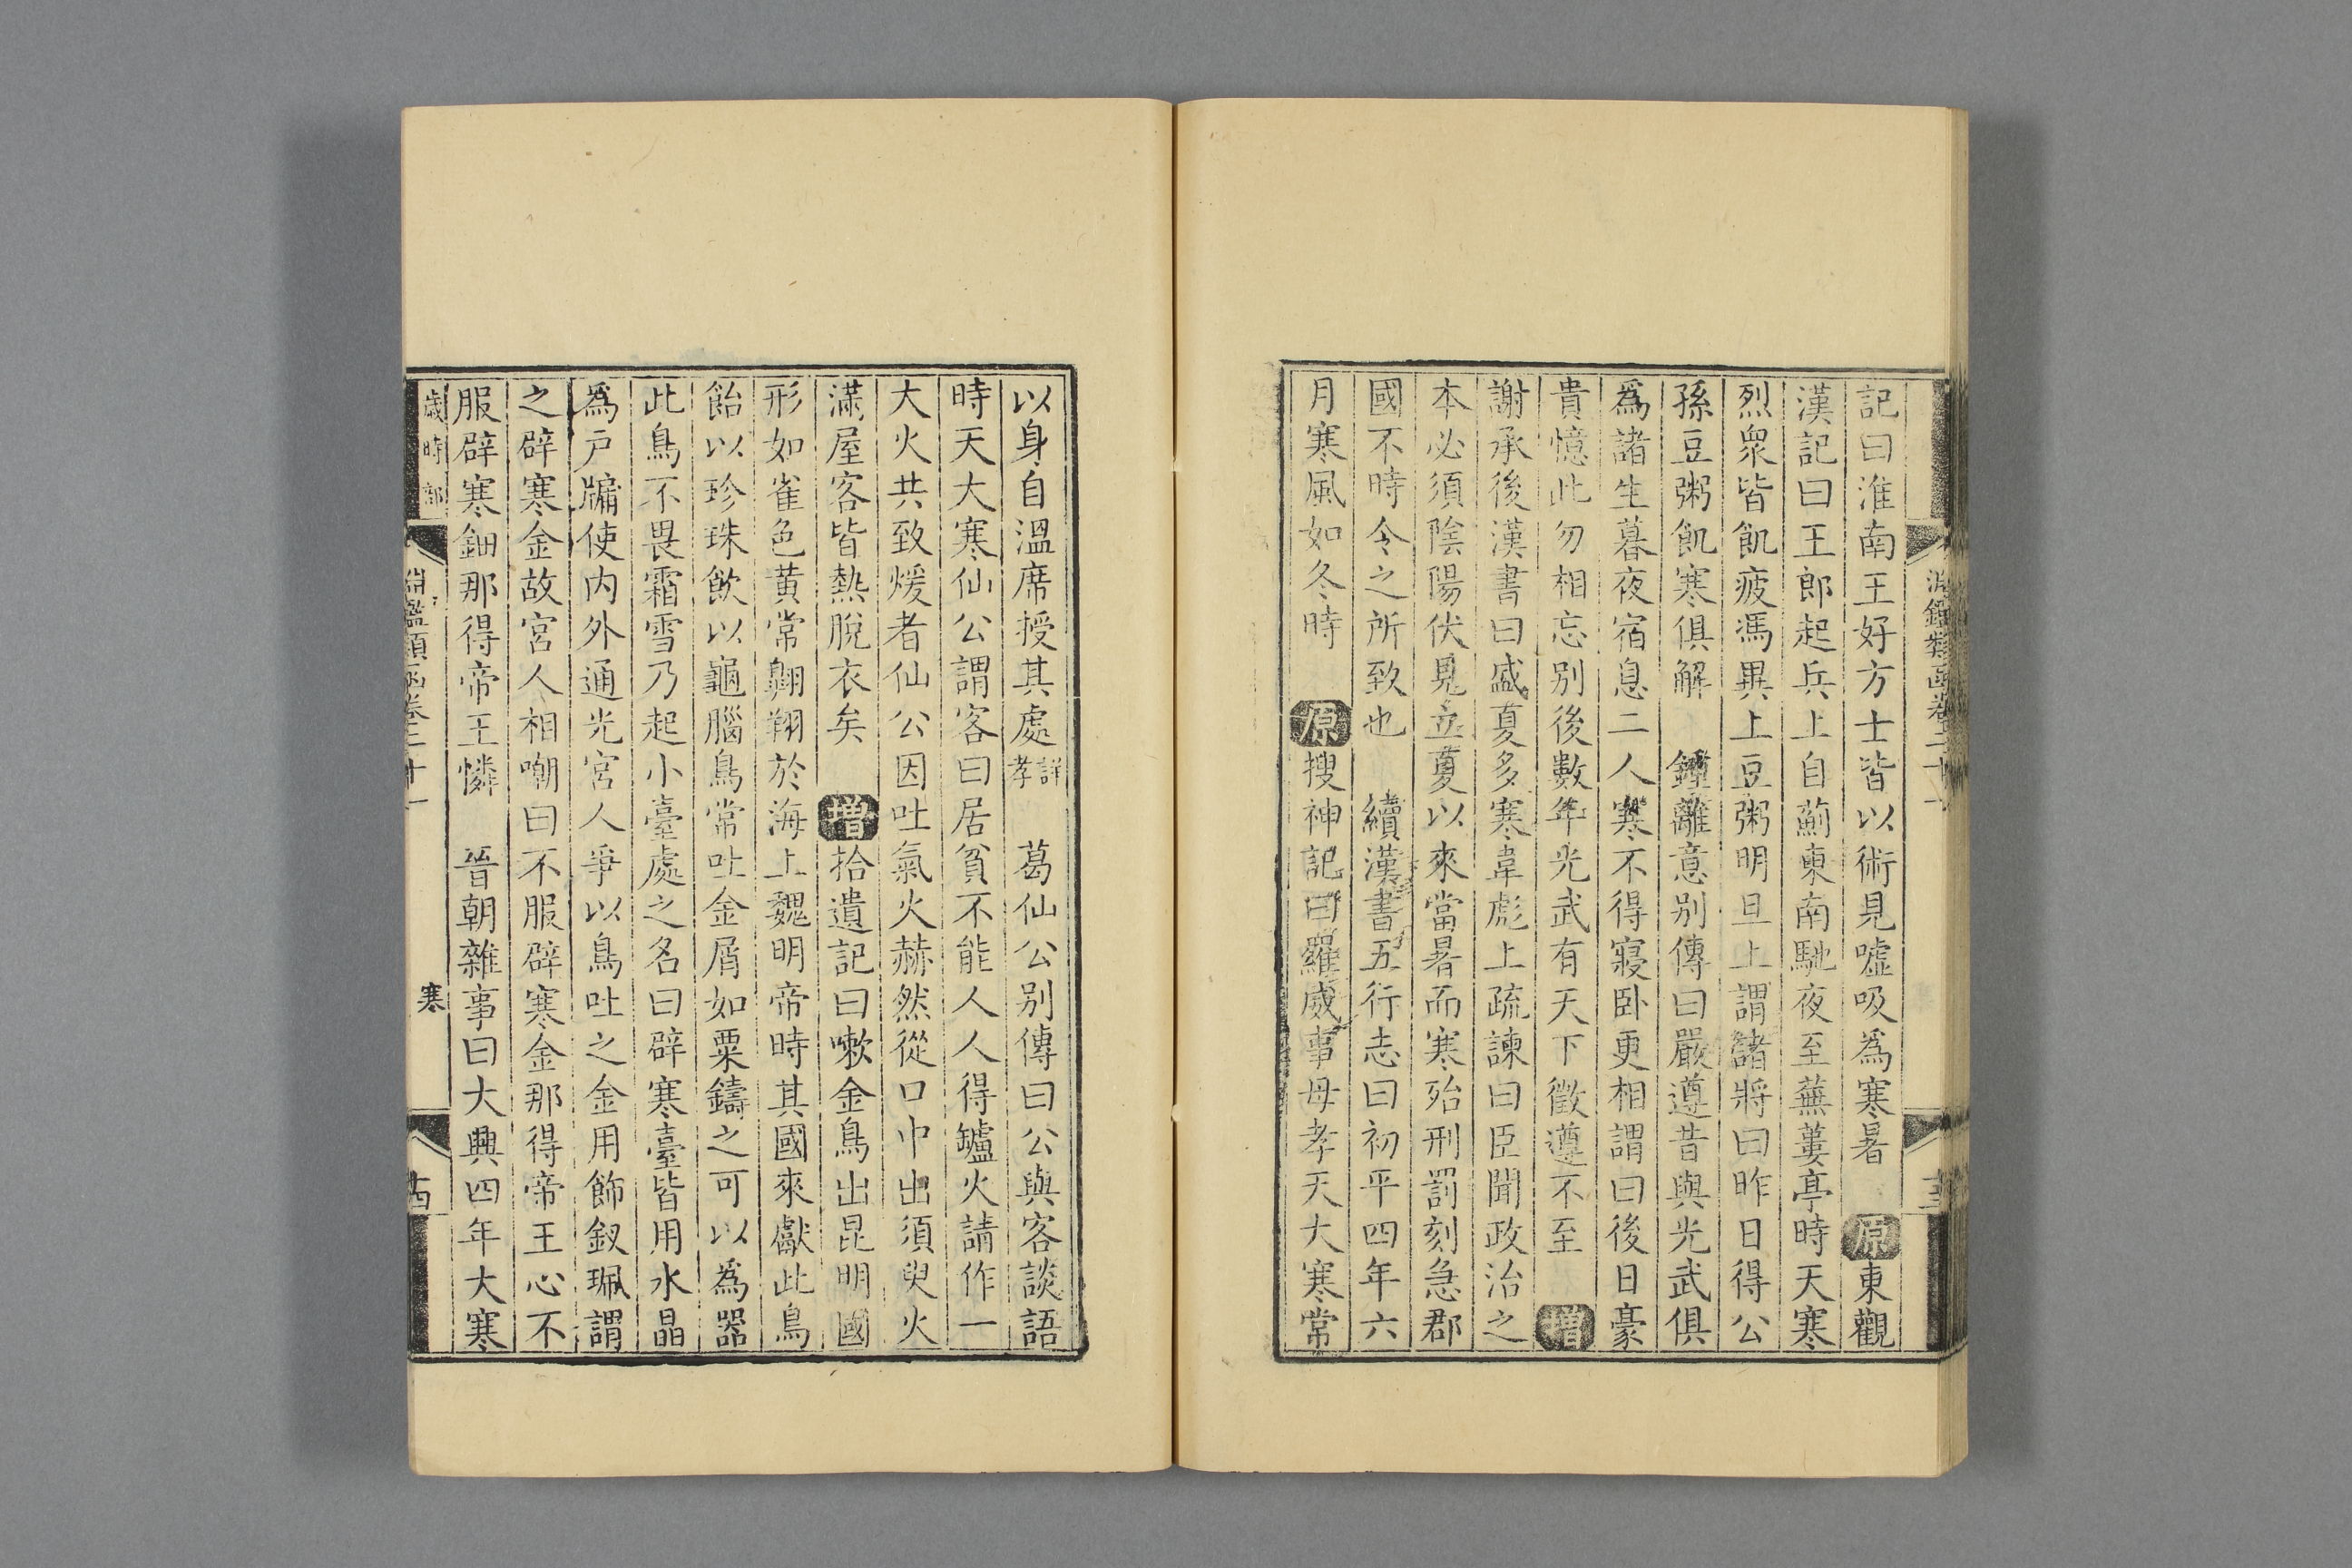 淵鑑類函卷二十一
記曰淮南王好方士皆以術見噓吸爲寒暑 原 東觀
漢記曰王郎起兵上自薊東南馳夜至蕪蔞亭時天寒
烈眾皆飢疲馮異上豆粥明旦上謂諸將曰昨日得公
孫豆粥飢寒俱解 鍾離意别傳曰嚴遵昔與光武俱
爲諸生暮夜宿息二人寒不得寢卧更相謂曰後日豪
貴憶此勿相忘别後數年光武有天下徵遵不至 增
謝承後漢書曰盛夏多寒韋彪上疏諫曰臣聞政治之
本必須陰陽伏見立夏以來當暑而寒殆刑罰刻急郡
國不時令之所致也 續漢書五行志曰初平四年六
月寒風如冬時 原 搜神記曰羅威事母孝天大寒常
以身自溫席授其處詳孝 葛仙公别傳曰公與客談語
時天大寒仙公謂客曰居貧不能人人得罏火請作一
大火共致煖者仙公因吐氣火赫然從口中出須臾火
滿屋客皆熱脫衣矣 增 拾遺記曰嗽金鳥出昆明國
形如雀色黄常翺翔於海上魏明帝時其國來獻此鳥
飴以珍珠飲以龜腦鳥常吐金屑如粟鑄之可以爲器
此鳥不畏霜雪乃起小臺處之名曰辟寒臺皆用水晶
爲戶牖使内外通光宮人爭以鳥吐之金用飾釵珮謂
之辟寒金故宮人相嘲曰不服辟寒金那得帝王心不
服辟寒鈿那得帝王憐 晉朝雜事曰大興四年大寒
歲時部 淵鑑類函卷二十一 寒 十四